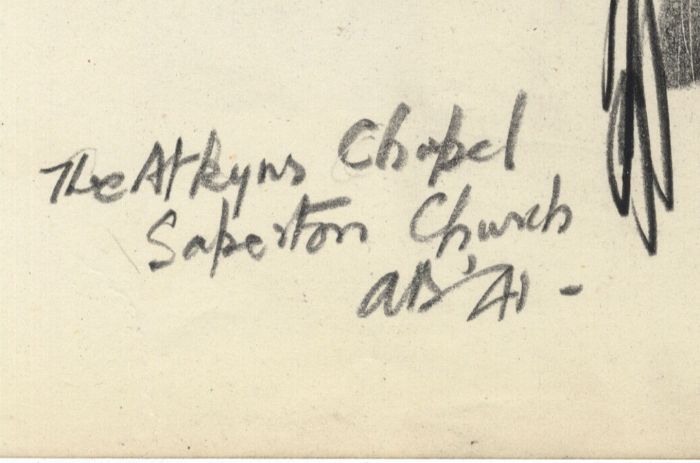 The Atkyns Chapel
Saperton Church
AB '41 -